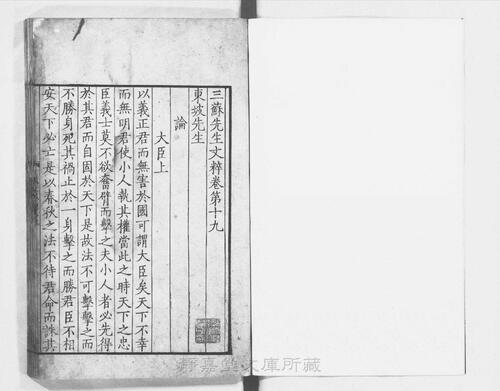 三蘇先生文粹卷第十九
東坡先生
論
大臣上
以義正君而無害於國可謂大臣矣天下不幸
而無明君使小人執其權當此之時天下之忠
臣義士莫不欲奮臂而擊之夫小人者必先得
於其君而自固於天下是故法不可擊擊之而
不勝身死其禍止於一身擊之而勝君臣不相
安天下必亡是以春秋之法不待君命而誅其
静嘉堂文庫所藏